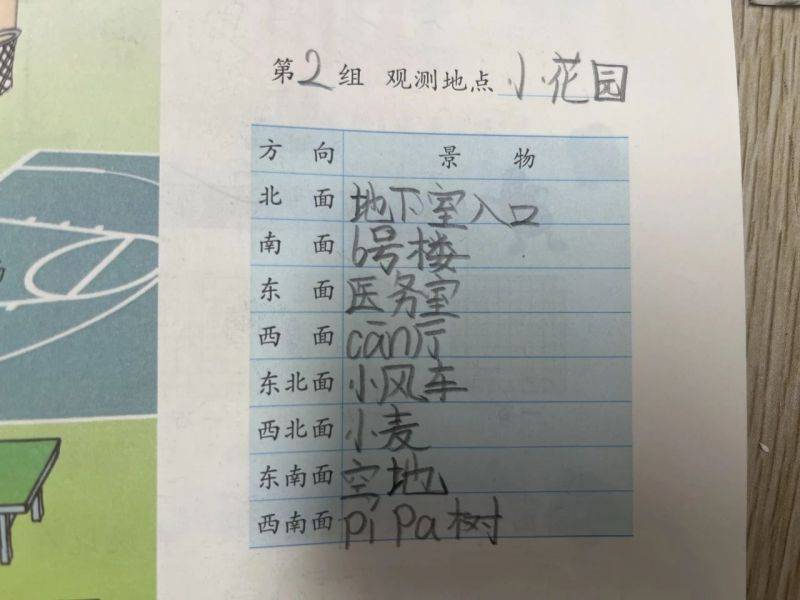 第2组 观测地点 小花园
方向 景物
北面 地下室入口
南面 6号楼
东面 医务室
西面 cān厅
东北面 小风车
西北面 小麦
东南面 空地
西南面 pí pa树